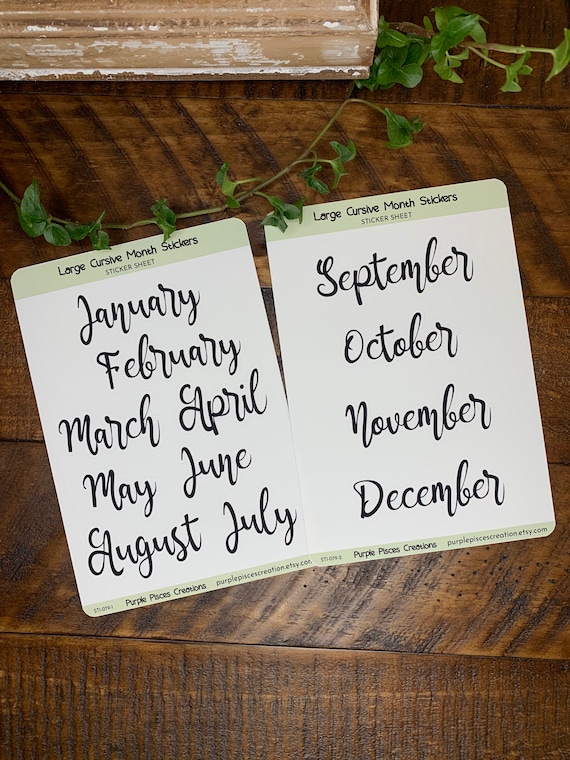 Large Cursive Month Stickers
STICKER SHEET
January
February
March April
May June
August July
STI-079-1 Purple Pisces Creations purplepiscescreation.etsy.com
Large Cursive Month Stickers
STICKER SHEET
September
October
November
December
STI-079-2 Purple Pisces Creations purplepiscescreation.etsy.com